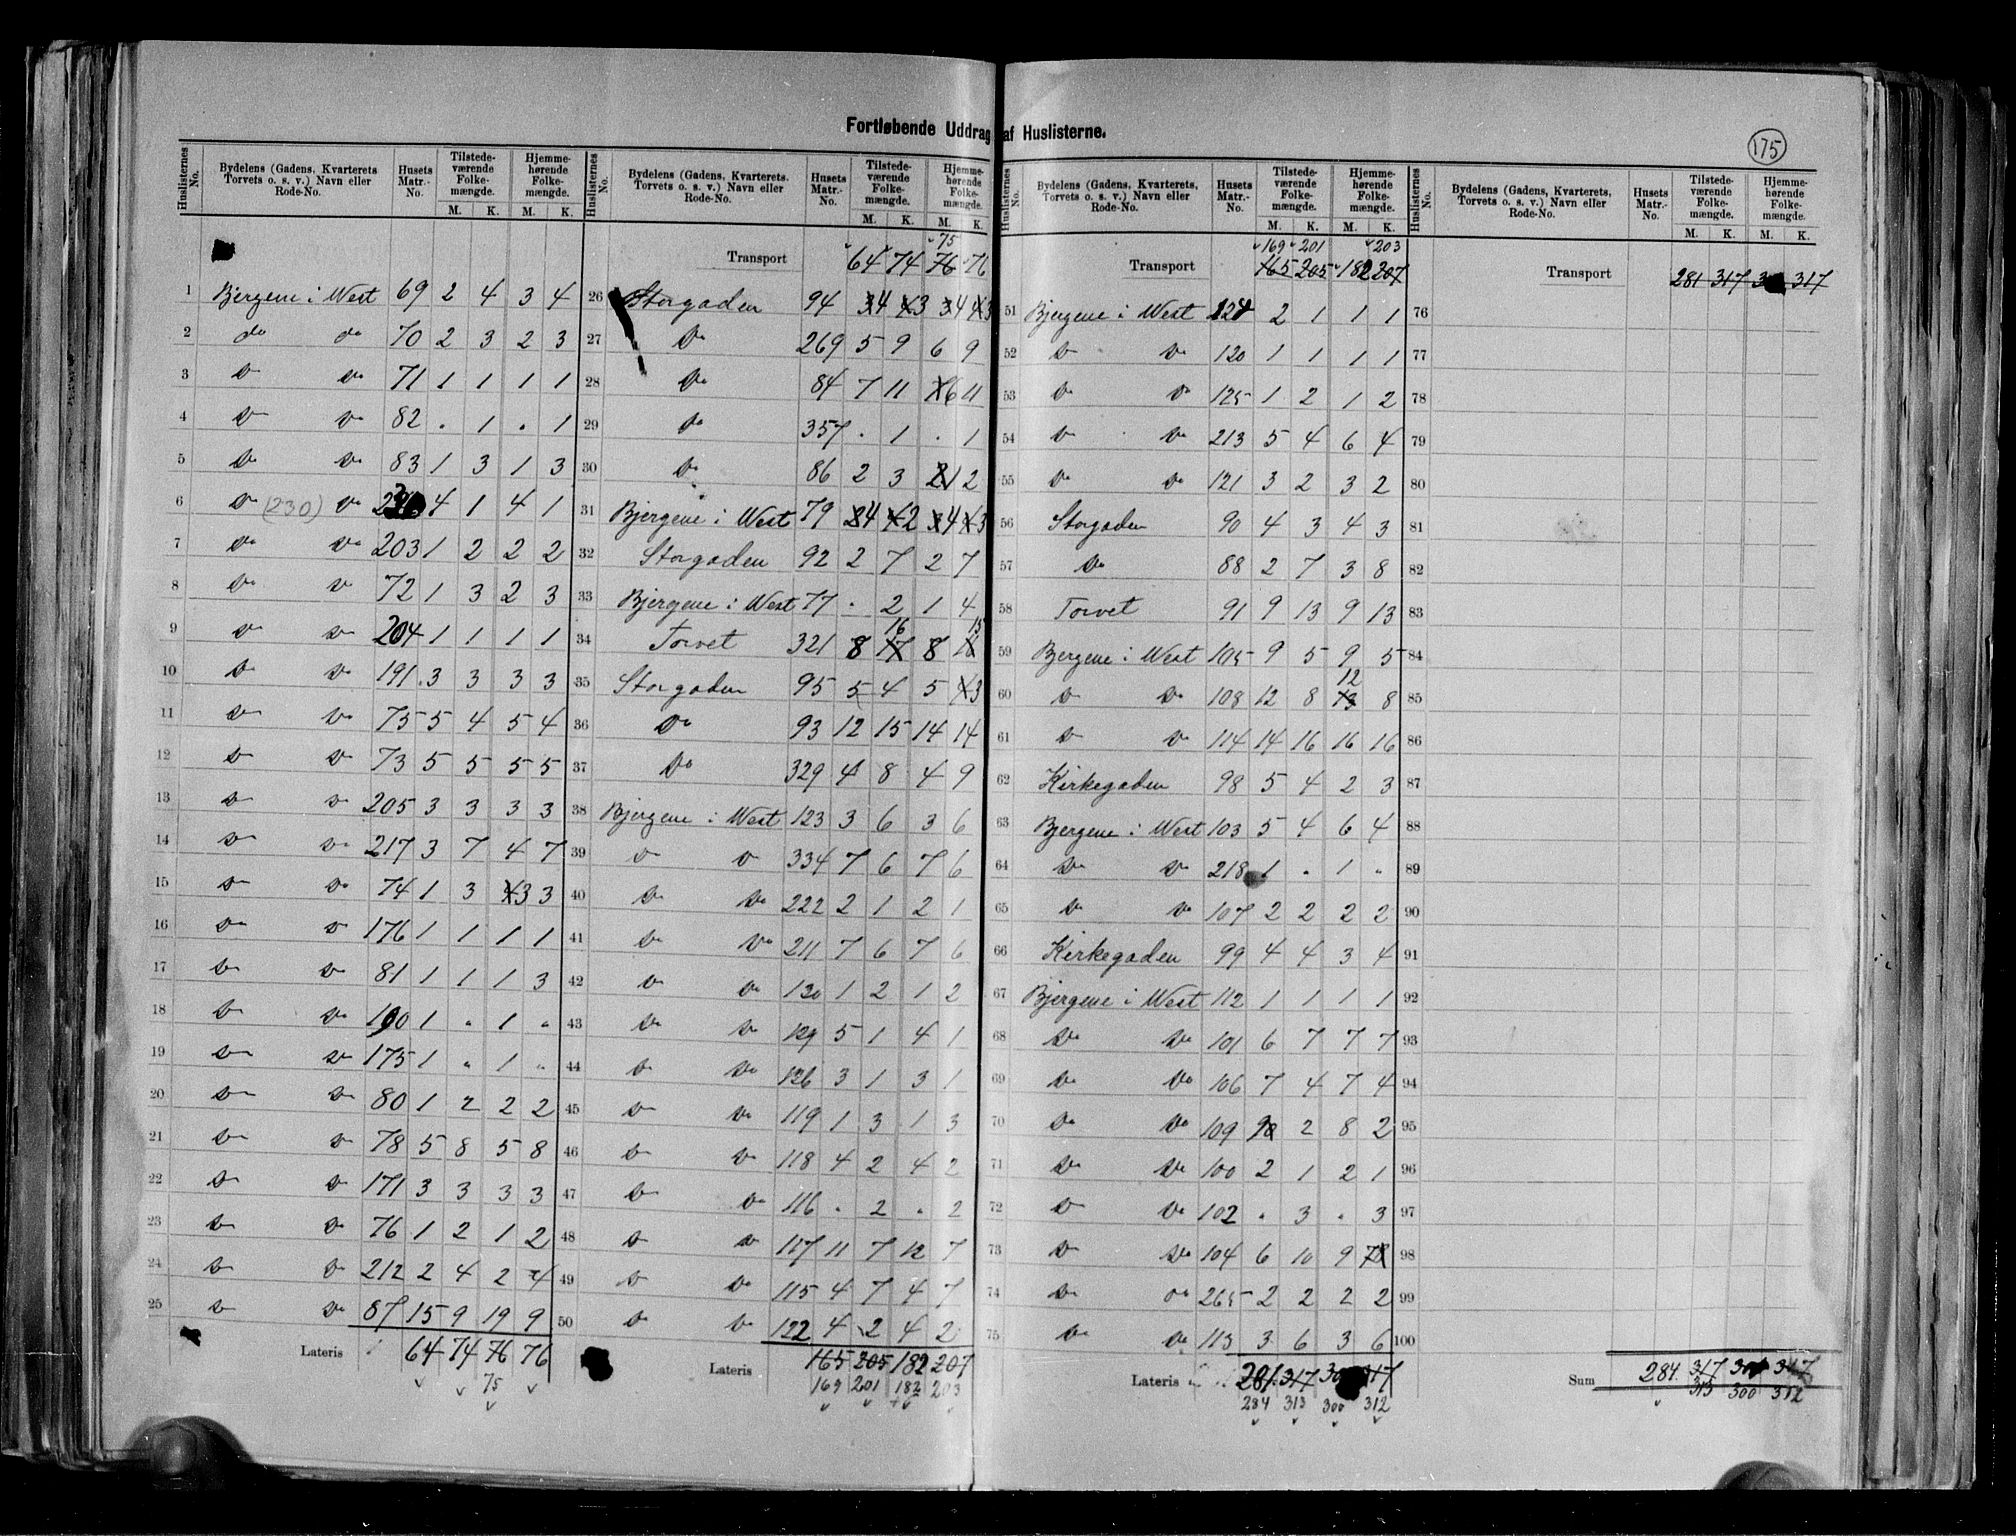 Fortløbende Uddrag af Huslisterne.
175
Huslisternes No. | Bydelens (Gadens, Kvarterets Torvets o. s. v.) Navn eller Rode-No. | Husets Matr.-No. | Tilstedeværende Folkemængde. M. K. | Hjemmehørende Folkemængde. M. K.
1 Bjergene i West 69 2 4 3 4
2 do do 70 2 3 2 3
3 Do Do 71 1 1 1 1
4 Do Do 82 " 1 " 1
5 Do Do 83 1 3 1 3
6 Do (230) Do 4 1 4 1
7 Do Do 203 1 2 2 2
8 Do Do 72 1 3 2 3
9 Do Do 204 1 1 1 1
10 Do Do 191 3 3 3 3
11 Do Do 75 5 4 5 4
12 Do Do 73 5 5 5 5
13 Do Do 205 3 3 3 3
14 Do Do 217 3 7 4 7
15 Do Do 74 1 3 3 3
16 Do Do 176 1 1 1 1
17 Do Do 81 1 1 1 3
18 Do Do 190 1 " 1 "
19 Do Do 175 1 " 1 "
20 Do Do 80 1 2 2 2
21 Do Do 78 5 8 5 8
22 Do Do 171 3 3 3 3
23 Do Do 76 1 2 1 2
24 Do Do 212 2 4 2 4
25 Do Do 87 15 9 19 9
Lateris 64 74 76 76
75
Huslisternes No. | Bydelens (Gadens, Kvarterets. Torvets o. s. v.) Navn eller Rode-No. | Husets Matr.-No. | Tilstedeværende Folkemængde. M. K. | Hjemmehørende Folkemængde. M. K.
75
Transport 64 74 76 76
26 Storgaden 94 4 3 4 3
27 Do 269 5 9 6 9
28 Do 84 7 11 6 11
29 Do 357 " 1 " 1
30 Do 86 2 3 1 2
31 Bjergene i West 79 4 2 4 3
32 Storgaden 92 2 7 2 7
33 Bjergene i West 77 " 2 1 4
16 15
34 Torvet 321 8 17 8 16
35 Storgaden 95 5 4 5 3
36 Do 93 12 15 14 14
37 Do 329 4 8 4 9
38 Bjergene i West 123 3 6 3 6
39 Do Do 334 7 6 7 6
40 Do Do 222 2 1 2 1
41 Do Do 211 7 6 7 6
42 Do Do 130 1 2 1 2
43 Do Do 129 5 1 4 1
44 Do Do 126 3 1 3 1
45 Do Do 119 1 3 1 3
46 Do Do 118 4 2 4 2
47 Do Do 116 " 2 " 2
48 Do Do 117 11 7 12 7
49 Do Do 115 4 7 4 7
50 Do Do 122 4 2 4 2
Lateris 165 205 182 207
169 201 182 203
Huslisternes No. | Bydelens (Gadens, Kvarterets, Torvets o. s. v.) Navn eller Rode-No. | Husets Matr.-No. | Tilstedeværende Folkemængde. M. K. | Hjemmehørende Folkemængde. M. K.
169 201 203
Transport 165 205 182 207
51 Bjergene i West 2 1 1 1
52 Do Do 120 1 1 1 1
53 Do Do 125 1 2 1 2
54 Do Do 213 5 4 6 4
55 Do Do 121 3 2 3 2
56 Storgaden 90 4 3 4 3
57 Do 88 2 7 3 8
58 Torvet 91 9 13 9 13
59 Bjergene i West 105 9 5 9 5
12
60 Do Do 108 12 8 13 8
61 Do Do 114 14 16 16 16
62 Kirkegaden 98 5 4 2 3
63 Bjergene i West 103 5 4 6 4
64 Do Do 218 1 " 1 "
65 Do Do 107 2 2 2 2
66 Kirkegaden 99 4 4 3 4
67 Bjergene i West 112 1 1 1 1
68 Do Do 101 6 7 7 7
69 Do Do 106 7 4 7 4
70 Do Do 109 2 8 2
71 Do Do 100 2 1 2 1
72 Do Do 102 " 3 " 3
73 Do Do 104 6 10 9
74 Do do 265 2 2 2 2
75 Do Do 113 3 6 3 6
Lateris 281 317 317
284 313 300 312
Huslisternes No. | Bydelens (Gadens, Kvarterets, Torvets o. s. v.) Navn eller Rode-No. | Husets Matr.-No. | Tilstedeværende Folkemængde. M. K. | Hjemmehørende Folkemængde. M. K.
Transport 281 317 317
76
77
78
79
80
81
82
83
84
85
86
87
88
89
90
91
92
93
94
95
96
97
98
99
100
Sum 284 317 317
313 300 312